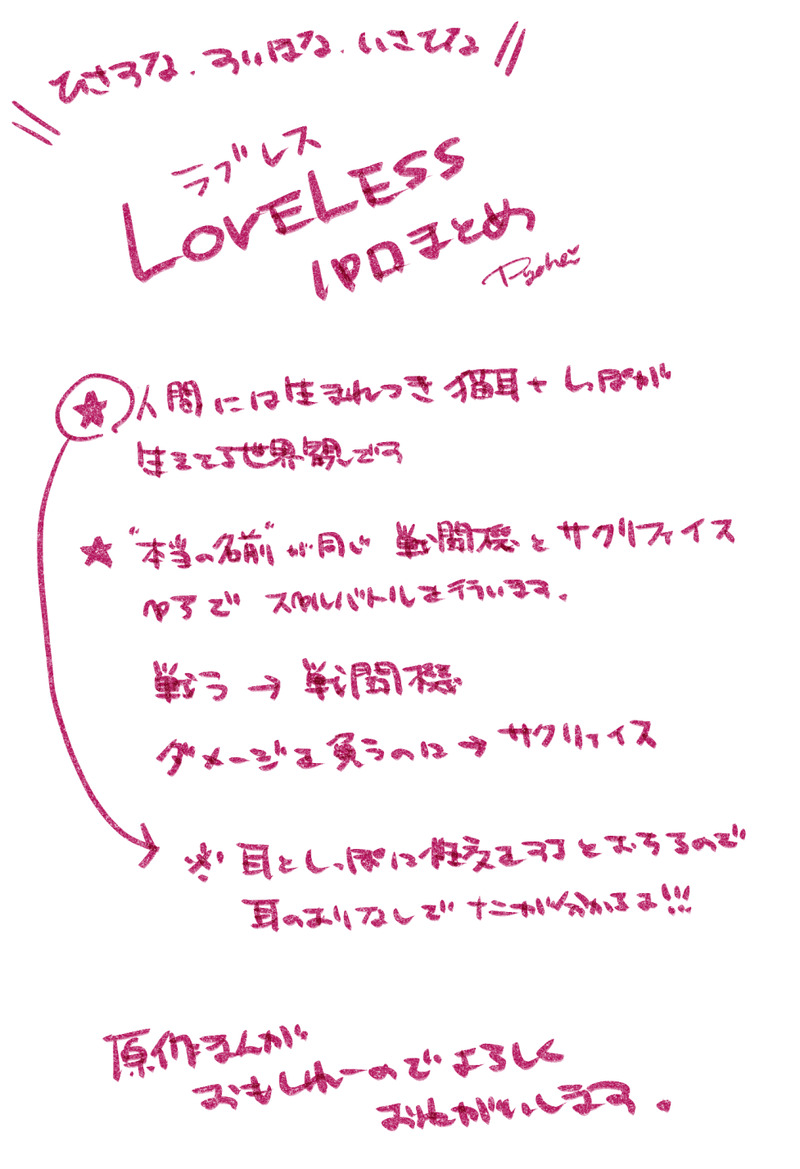 ひさろな、ろいはな、いさひよ
ラブレス
LOVELESS
パロまとめ
★人間には生まれつき猫耳+しっぽが
生えてる世界観です
★"本当の名前"が同じ戦闘機とサクリファイス
ペアで スペルバトルを行います。
戦う→戦闘機
ダメージを負うのは→サクリファイス
※耳としっぽは性交をするとおちるので
耳のありなしでナニかが分かるよ!!!
原作まんが
おもしれーのでよろしく
おねがいします。